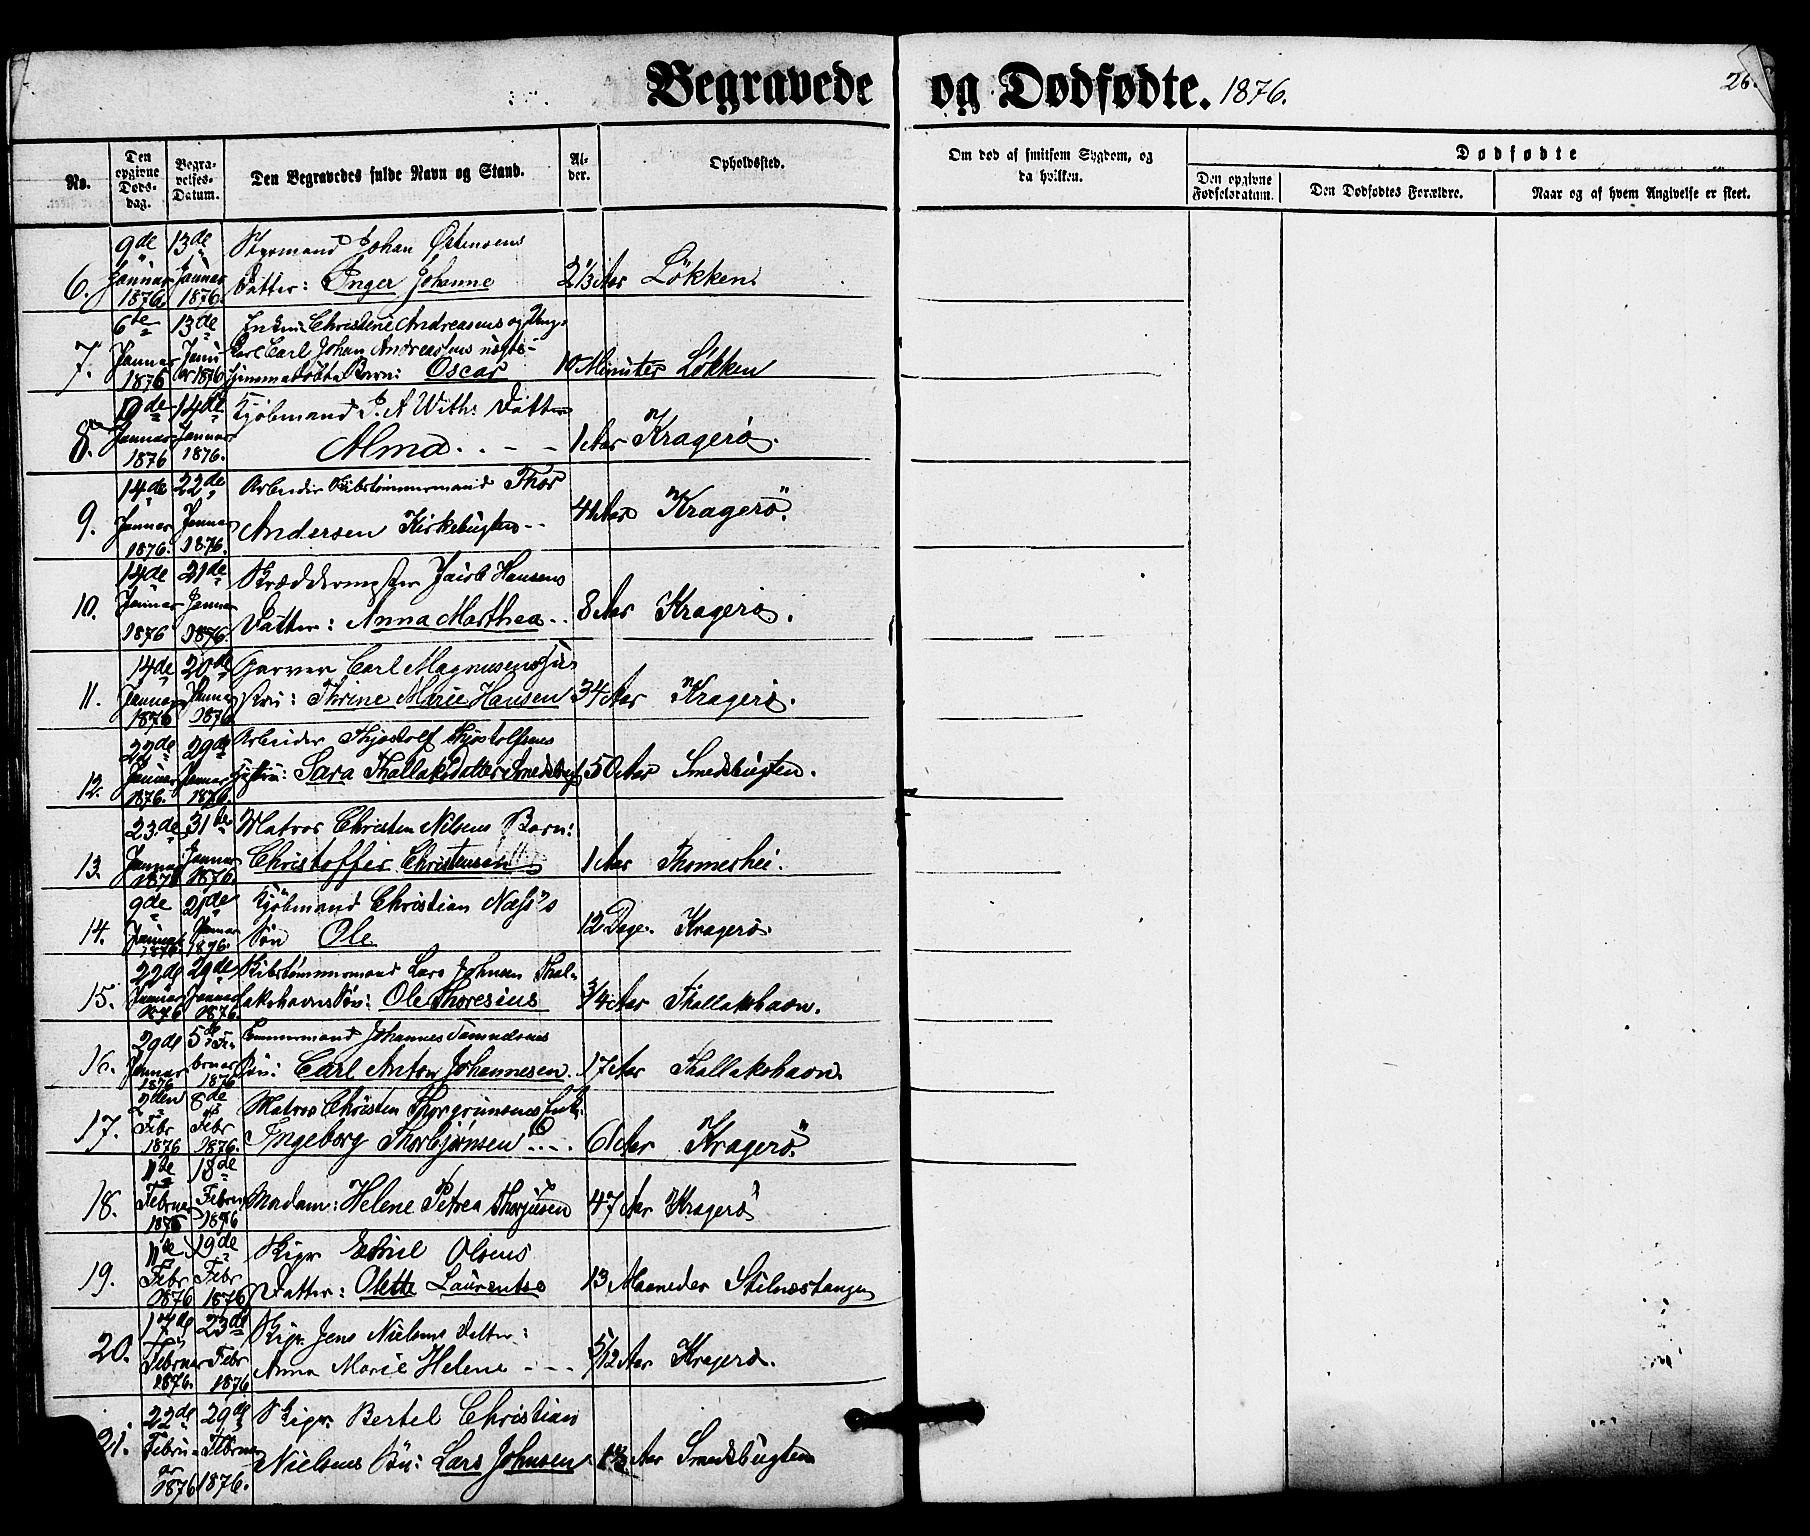 Begravede og Dødfødte. 1876.
26
No.
Den opgivne Døds-dag.
Begra-velses-Datum.
Den Begravedes fulde Navn og Stand.
Al-der.
Opholdssted.
Om død af smitsom Sygdom, og da hvilken.
Dødfødte
Den opgivne Fødselsdatum.
Den Dødfødtes Forældre.
Naar og af hvem Angivelse er skeet.
9de 13de Styrmand Johan Østensens
6. Januar 1876. Januar 1876. Datter: Inger Johanne 2 1/3 Aar Løkken
6te 13de Enken Christine Andreasens og Ung-
7. Januar 1876 Januar 1876 Karl Carl Johan Andreassens uægte
hjemmedøbte Barn: Oscar 10 Minuter Løkken
14de Kjøbmand P. A. Withs Datter
8. Januar 1876 Januar 1876. Alma 1 Aar Kragerø.
14de 22de Arbeider Skibstømmermand Thor
9. Januar 1876. Januar 1876. Andersen Kirkebugten 41 Aar Kragerø.
14de 21de Skræddermester Jacob Hansens
10. Januar 1876 Januar 1876. Datter: Anna Marthea 8 Aar Kragerø.
14de 20de Garver Carl Magnusens Hu-
11. Januar 1876 Januar 1876 stru: Thrine Marie Hansen 34 Aar Kragerø.
22de 29de Arbeider Thjostolf Thjostolfsens
12. Januar 1876. Januar 1876. Hustru: Sara Thallaksdatter Smedsbugt 50 Aar Smedsbugten.
23de 31te Matros Christen Nilsens Barn:
13. Januar 1876 Januar 1876. Christoffer Christensen 1 Aar Thomeshei.
9de 21de Kjøbmand Christian Næss's
14. Januar 1876 Januar 1876. Søn Ole 12 Dage. Kragerø
22de 29de Skibstømmermand Lars Johnsen Thal-
15. Januar 1876 Januar 1876. lakshavns Søn: Ole Thoresius 3/4 Aar Thallakshavn.
29de 5de Fe- Tømmermand Johannes
16. Januar 1876 bruar 1876 Søn: Carl Anton Johannesen. 17 Aar Thallakshavn
2den 8de Matros Christen Thorgrimsens Enke
17. Febr 1876 Febr 1876. Ingeborg Thorbjørnsen 61 Aar Kragerø.
11te 18de
18. Februar 1876 Februar 1876 Madam: Helene Petrea Thorjusen 47 Aar Kragerø
11te 19de Skipr. Olsens
19. Febr 1876 Febr 1876 Datter: Olette Laurentse 13 Maaneder Stilnestangen
17de 23de Skipr. Jens Nielsens Datter:
20. Februar 1876. Febr 1876 Anna Marie Helene 5/12 Aar Kragerø.
22de 29de Skipr. Bertel Christian
21. Februar 1876 Februar 1876. Nielsens Søn: Lars Johnsen Aar Smedsbugten